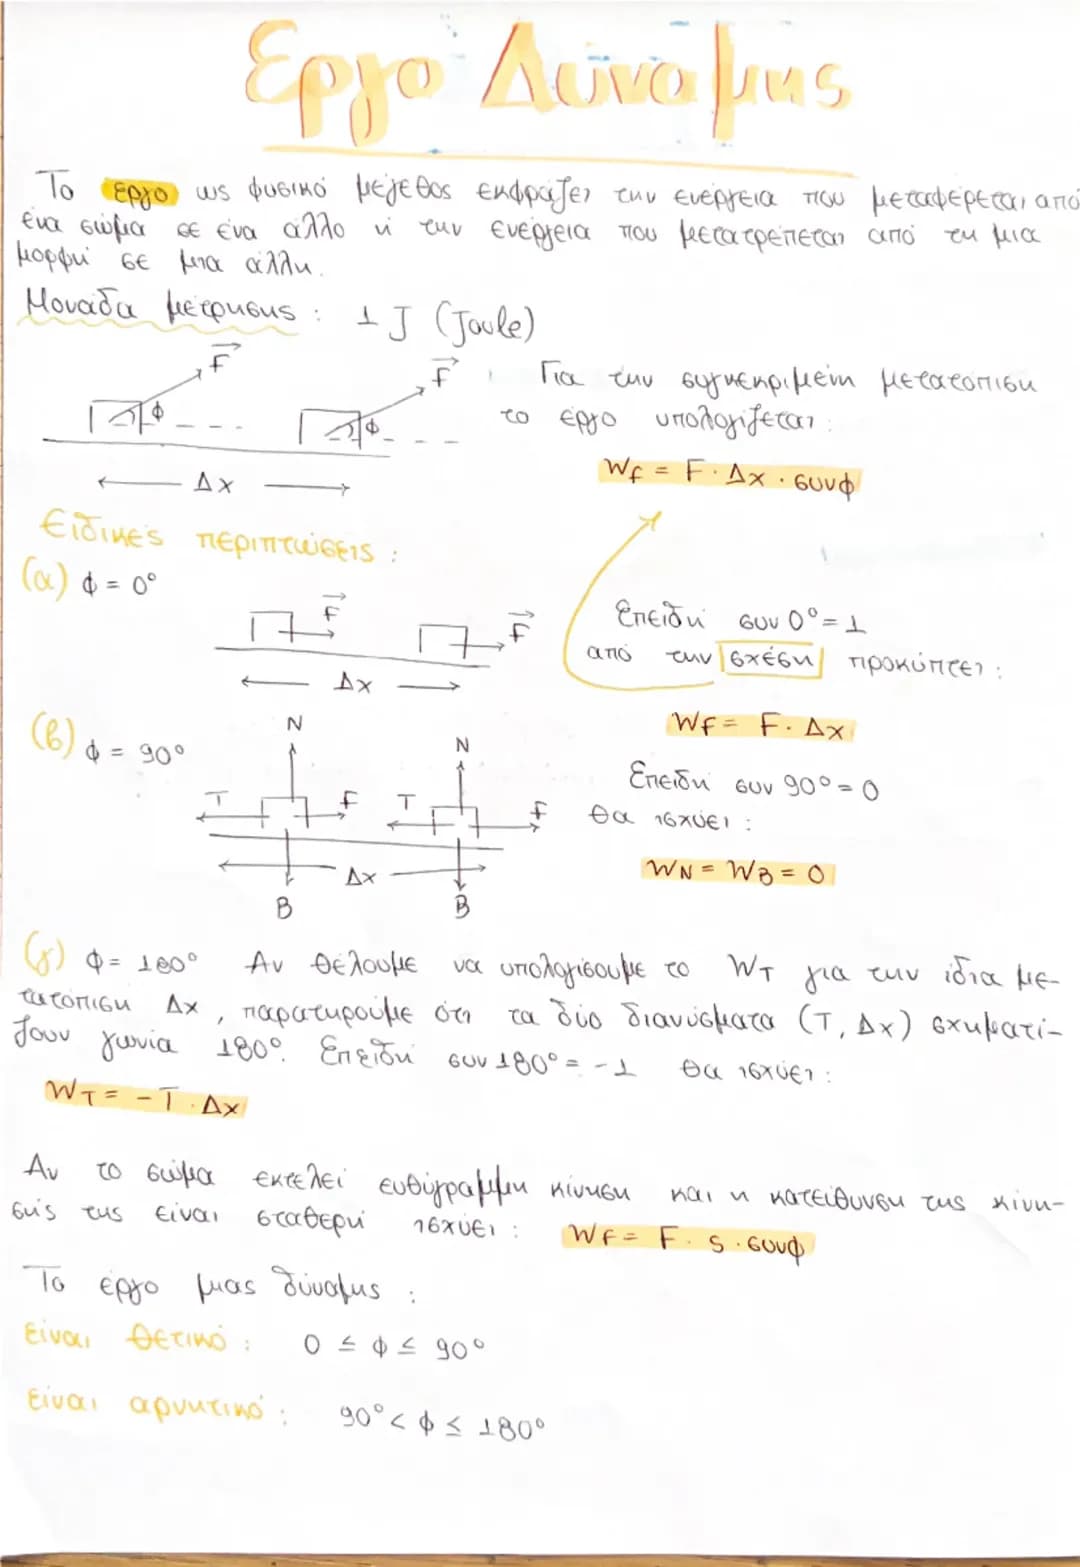 Έργο Δύναμης
Το έργο ως φυσικό μέγεθος εκφράζει την ενέργεια που μεταφέρεται από
ένα σώμα σε ένα άλλο ή την ενέργεια που μετατρέπεται από τη μια
μορφή σε μια άλλη.
Μονάδα μέτρησης : 1 J (Joule)
F F
φ φ
Για την συγκεκριμένη μετατόπιση
το έργο υπολογίζεται :
Δx
Wf = F · Δx · συνφ
Ειδικές περιπτώσεις :
(α) φ = 0°
F F
Δx
Επειδή συν 0° = 1
από την σχέση προκύπτει :
WF = F · Δx
(β) φ = 90°
N N
T F T F
Δx
B B
Επειδή συν 90° = 0
θα ισχύει :
WN = WB = 0
(γ) φ = 180° Αν θέλουμε να υπολογίσουμε το WT για την ίδια με-
τατόπιση Δx , παρατηρούμε ότι τα δύο διανύσματα (T, Δx) σχηματί-
ζουν γωνία 180°. Επειδή συν 180° = -1 θα ισχύει :
WT = - T · Δx
Αν το σώμα εκτελεί ευθύγραμμη κίνηση και η κατεύθυνση της κίνη-
σής της είναι σταθερή ισχύει : WF = F · S · συνφ
Το έργο μιας δύναμης :
Είναι θετικό : 0 ≤ φ ≤ 90°
Είναι αρνητικό : 90° < φ ≤ 180°